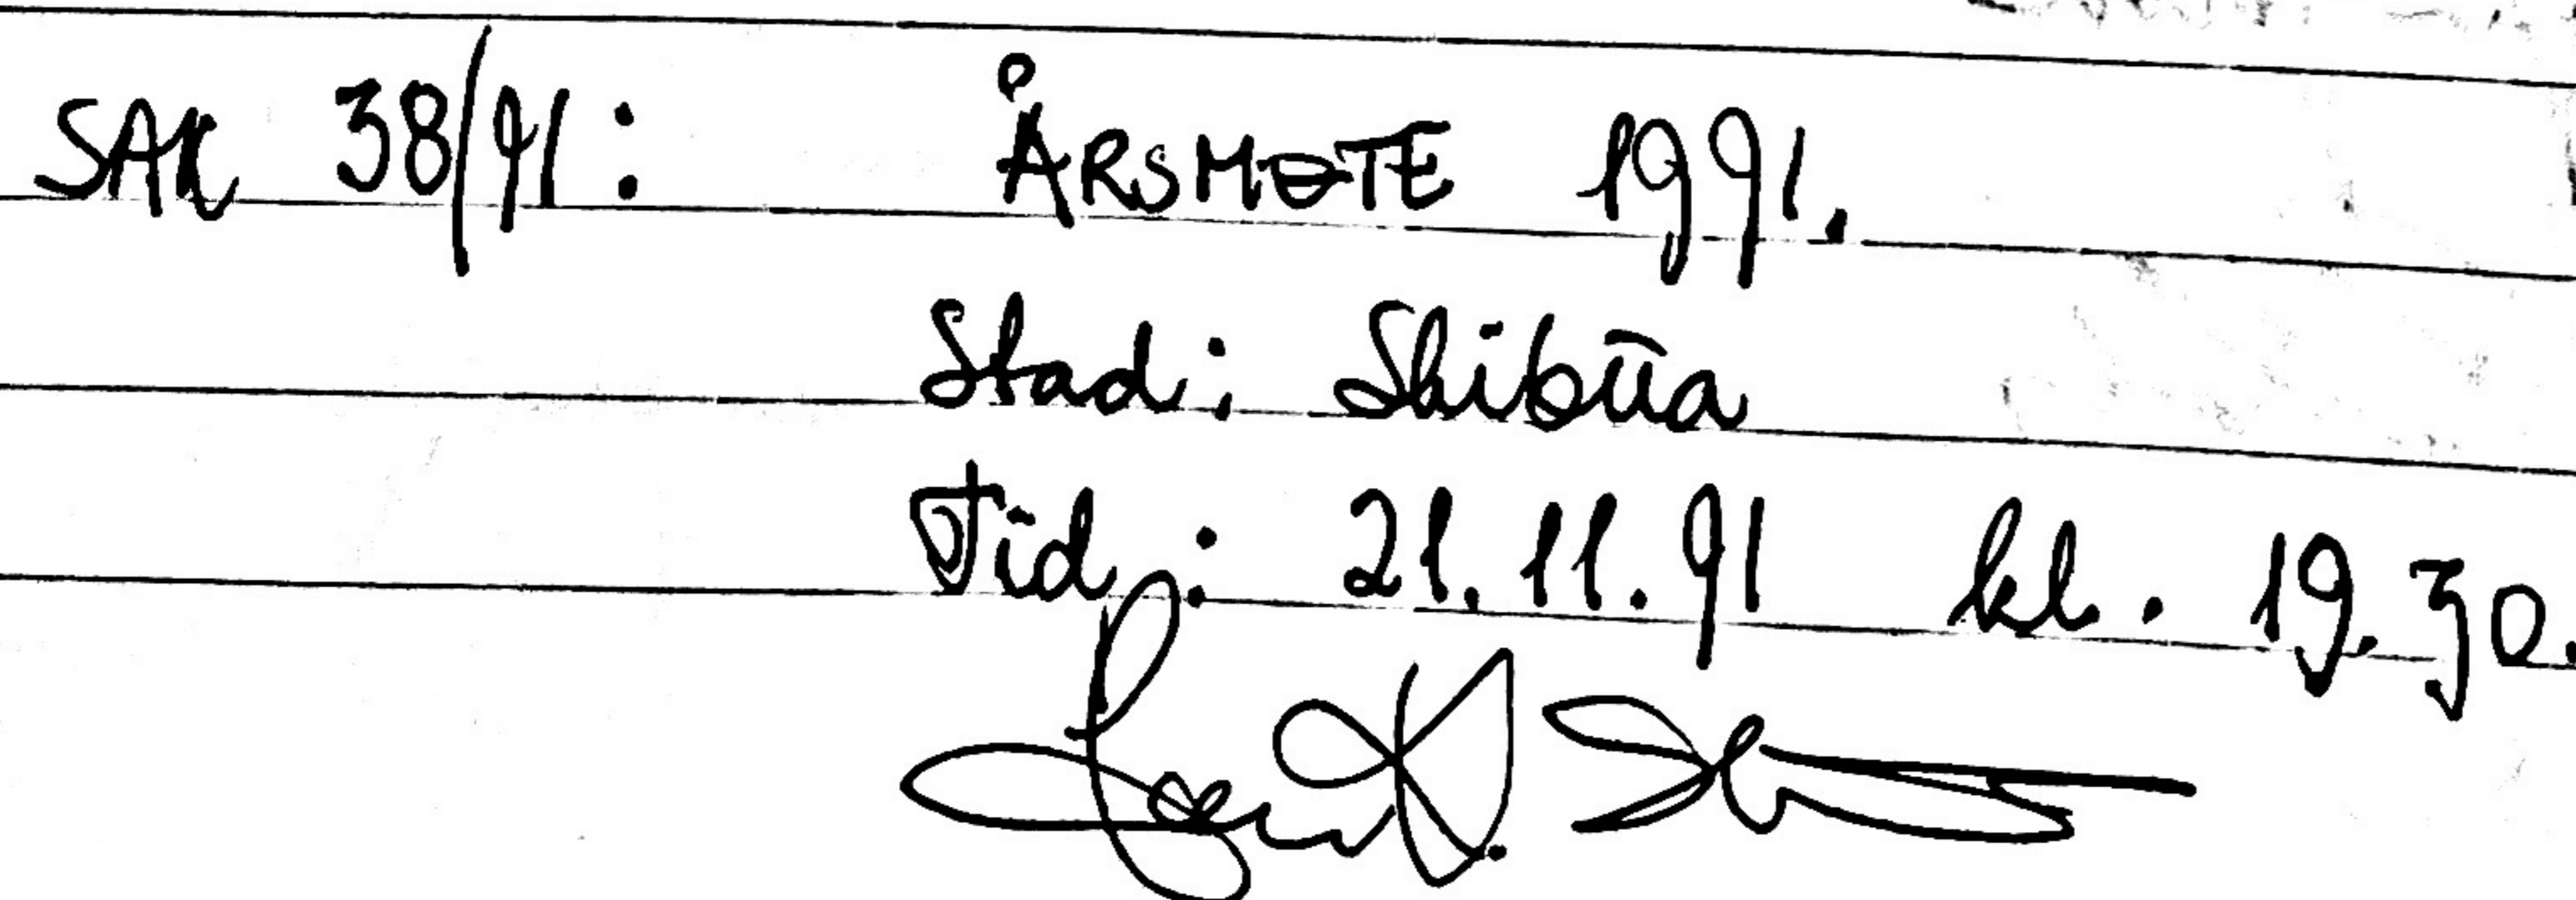 SAK 38/91: ÅRSMØTE 1991.
Stad: Skibūa
Tid: 21.11.91 kl. 19.30.